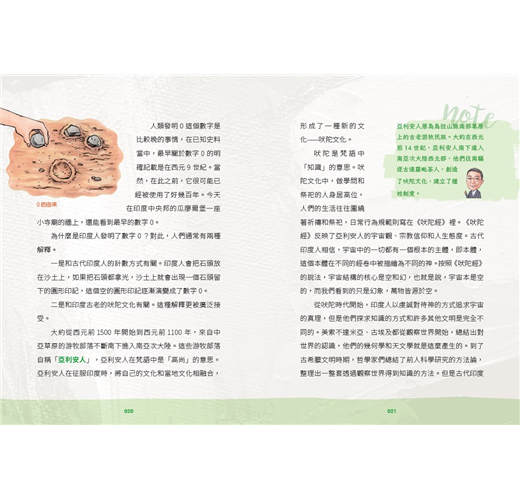 人類發明 0 這個數字是
比較晚的事情,在已知史料
當中,最早關於數字 0 的明
確記載是在西元 9 世紀。當
然,在此之前,它很可能已
經被使用了好幾百年。今天
在印度中央邦的瓜廖爾堡一座
0 的由來
小寺廟的牆上,還能看到最早的數字 0。
為什麼是印度人發明了數字 0?對此,人們通常有兩種
解釋。
一是和古代印度人的計數方式有關。印度人會把石頭放
在沙土上,如果把石頭都拿光,沙土就會出現一個石頭留
下的圓形印記,這個空的圓形印記逐漸演變成了數字 0。
二是和印度古老的吠陀文化有關。這種解釋更被廣泛接
受。
大約從西元前 1500 年開始到西元前 1100 年,來自中
亞草原的游牧部落不斷南下進入南亞次大陸。這些游牧部落
自稱「亞利安人」,亞利安人在梵語中是「高尚」的意思。
亞利安人在征服印度時,將自己的文化和當地文化相融合,
020
形成了一種新的文
化——吠陀文化。
吠陀是梵語中
「知識」的意思。吠
陀文化中,做學問和
祭祀的人身居高位,
人們的生活往往圍繞
著祈禱和祭祀,日常行為規範則寫在《吠陀經》裡。《吠陀
經》反映了亞利安人的宇宙觀、宗教信仰和人生態度。古代
印度人相信,宇宙中的一切都有一個根本的主體,即本體,
這個本體在不同的經卷中被描繪為不同的神。按照《吠陀經》
的說法,宇宙結構的核心是空和幻,也就是說,宇宙本是空
的,而我們看到的只是幻象,萬物皆源於空。
從吠陀時代開始,印度人以虔誠對待神的方式追求宇宙
的真理,但是他們探求知識的方式和許多其他文明是完全不
同的。美索不達米亞、古埃及都從觀察世界開始,總結出對
世界的認識,他們的幾何學和天文學就是這麼產生的。到了
古希臘文明時期,哲學家們總結了前人科學研究的方法論,
整理出一整套透過觀察世界得到知識的方法。但是古代印度
021
note
亞利安人原為烏拉山脈南部草原
上的古老游牧民族。大約在西元
前 14 世紀,亞利安人南下進入
南亞次大陸西北部,他們往南驅
逐古達羅毗荼人,創造
了吠陀文化,建立了種
姓制度。